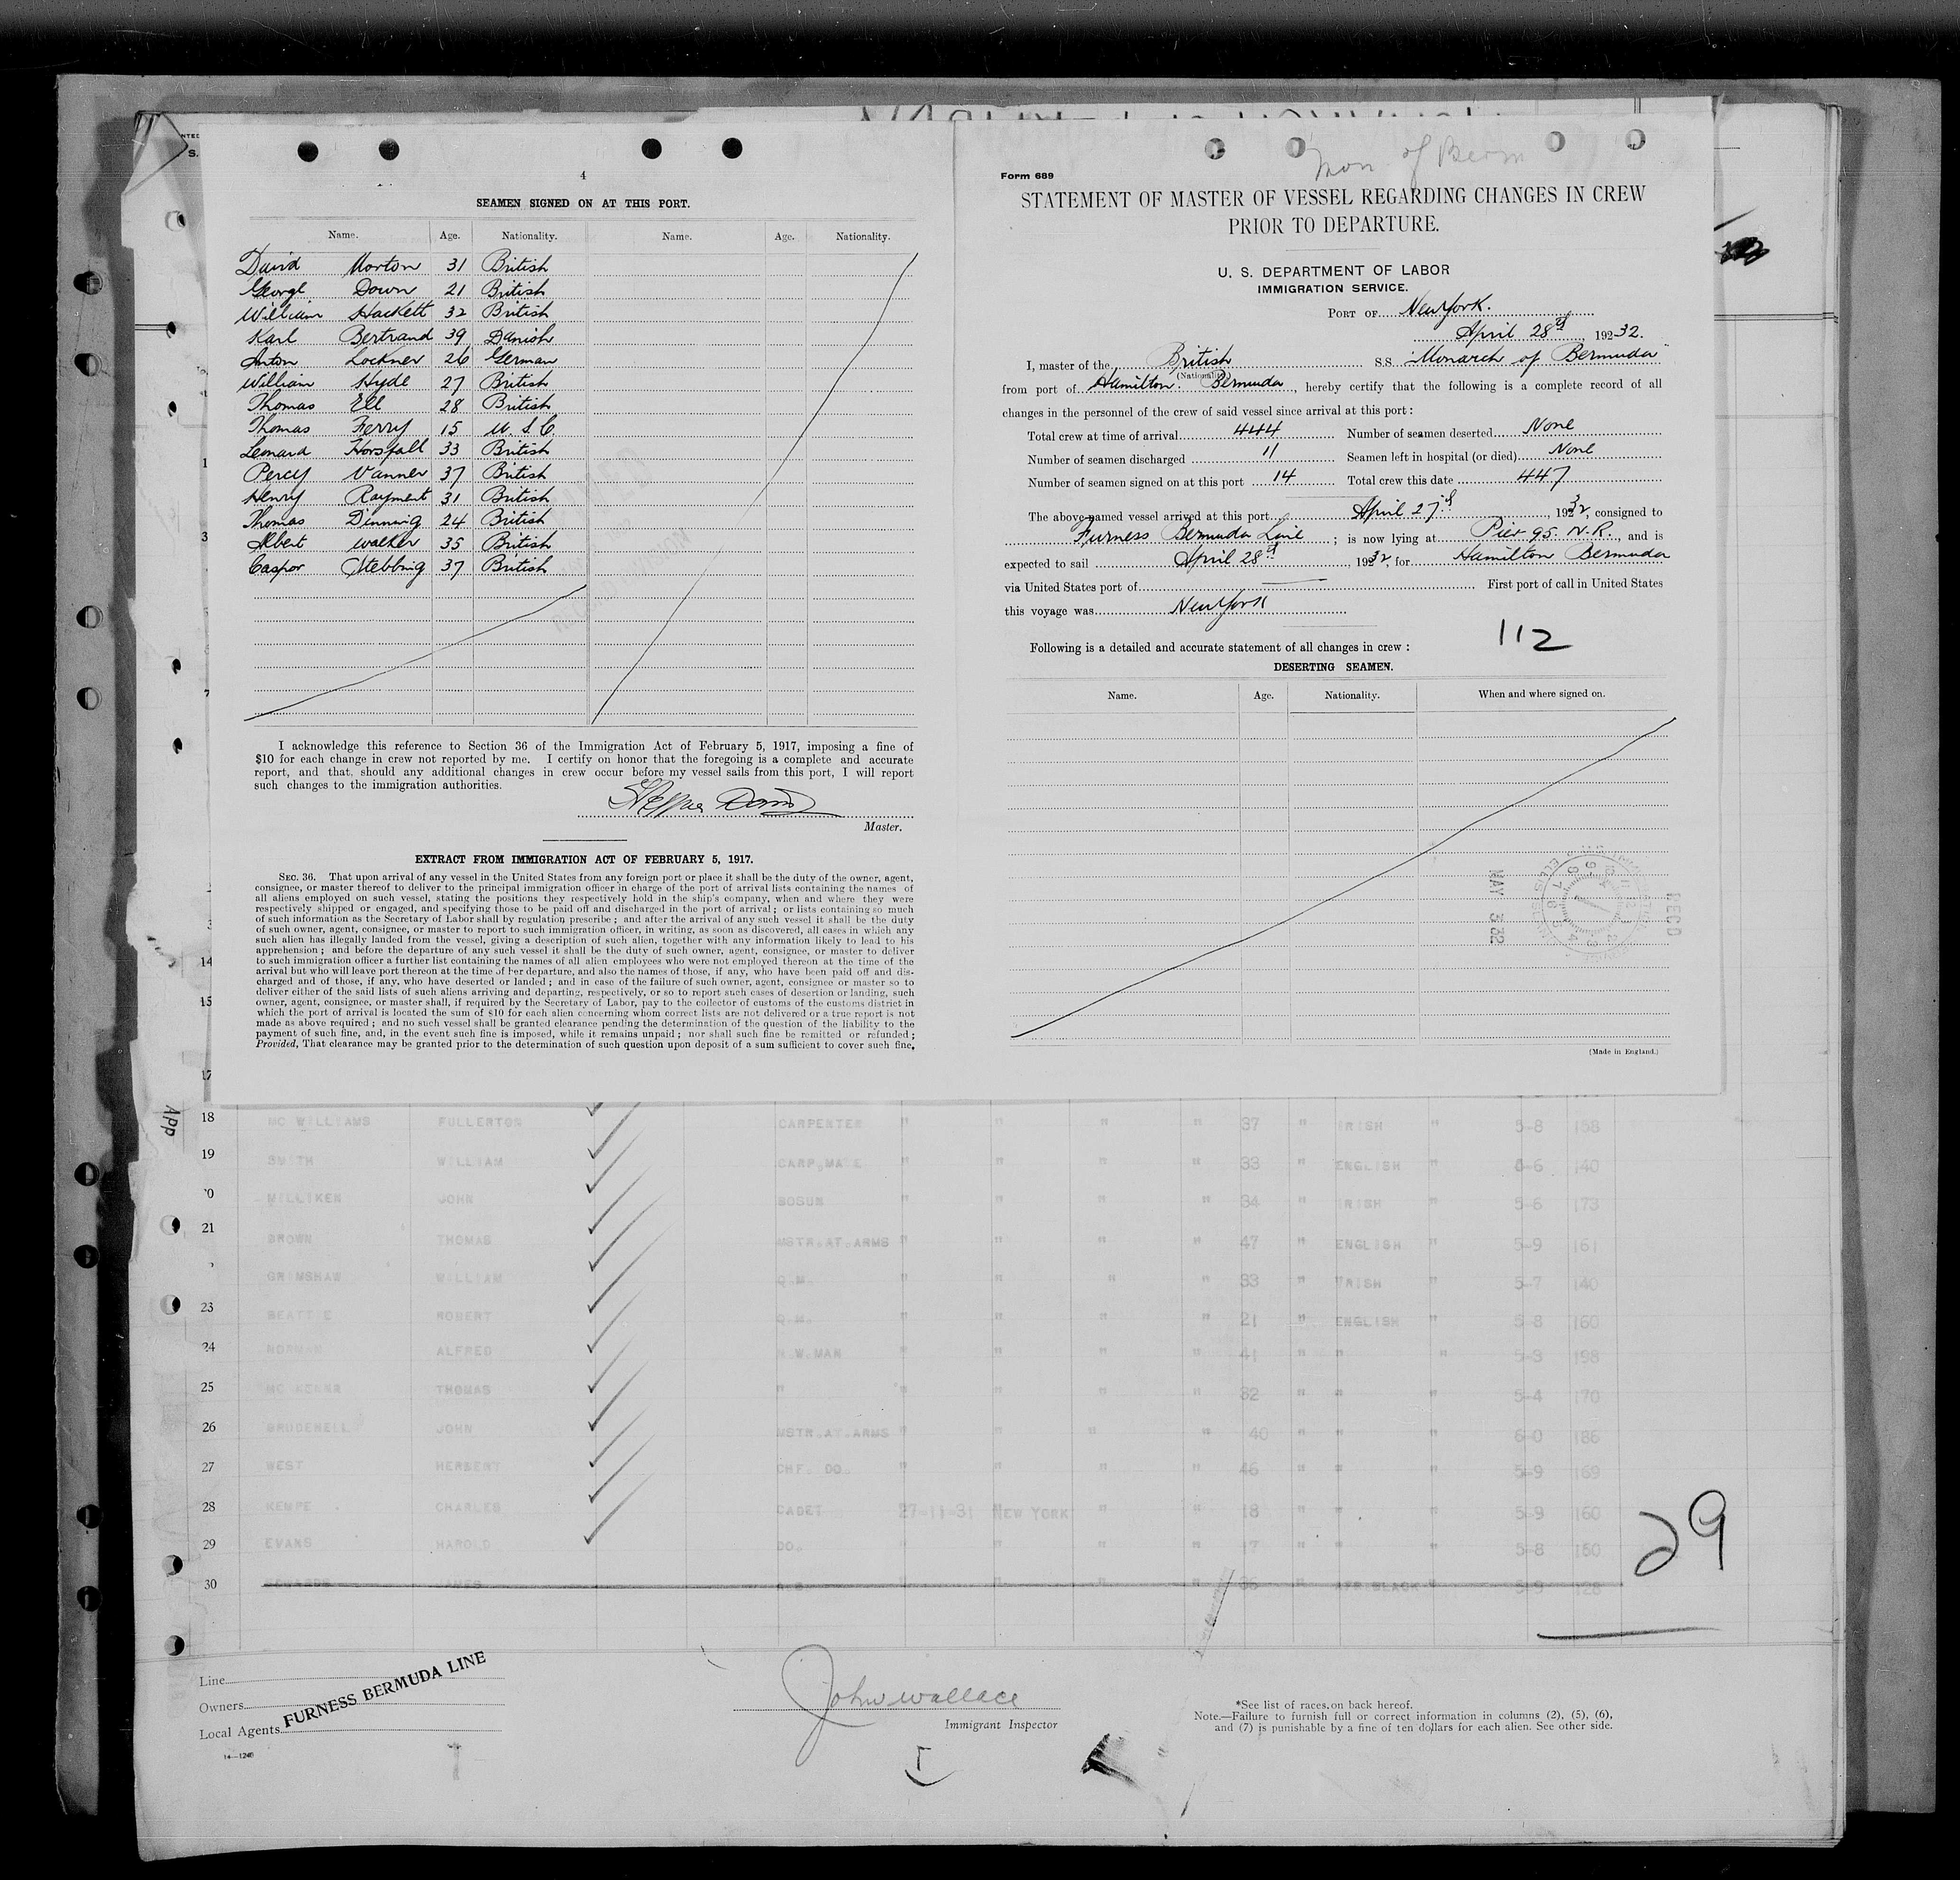 4
SEAMEN SIGNED ON AT THIS PORT.
Name. Age. Nationality. Name. Age. Nationality.
David Morton 31 British
George Down 21 British
William Hackett 32 British
Karl Bertrand 39 Danish
Anton Lockner 26 German
William Hyde 27 British
Thomas Ell 28 British
Thomas Ferry 15 U.S.C
Leonard Horsfall 33 British
Percy Vanner 37 British
Henry Rayment 31 British
Thomas Dinning 24 British
Albert Walker 35 British
Caspor Stebbing 37 British
I acknowledge this reference to Section 36 of the Immigration Act of February 5, 1917, imposing a fine of
$10 for each change in crew not reported by me. I certify on honor that the foregoing is a complete and accurate
report, and that, should any additional changes in crew occur before my vessel sails from this port, I will report
such changes to the immigration authorities.
Master.
EXTRACT FROM IMMIGRATION ACT OF FEBRUARY 5, 1917.
SEC. 36. That upon arrival of any vessel in the United States from any foreign port or place it shall be the duty of the owner, agent,
consignee, or master thereof to deliver to the principal immigration officer in charge of the port of arrival lists containing the names of
all aliens employed on such vessel, stating the positions they respectively hold in the ship's company, when and where they were
respectively shipped or engaged, and specifying those to be paid off and discharged in the port of arrival; or lists containing so much
of such information as the Secretary of Labor shall by regulation prescribe; and after the arrival of any such vessel it shall be the duty
of such owner, agent, consignee, or master to report to such immigration officer, in writing, as soon as discovered, all cases in which any
such alien has illegally landed from the vessel, giving a description of such alien, together with any information likely to lead to his
apprehension; and before the departure of any such vessel it shall be the duty of such owner, agent, consignee, or master to deliver
to such immigration officer a further list containing the names of all alien employees who were not employed thereon at the time of the
arrival but who will leave port thereon at the time of her departure, and also the names of those, if any, who have been paid off and dis-
charged and of those, if any, who have deserted or landed; and in case of the failure of such owner, agent, consignee or master so to
deliver either of the said lists of such aliens arriving and departing, respectively, or so to report such cases of desertion or landing, such
owner, agent, consignee, or master shall, if required by the Secretary of Labor, pay to the collector of customs of the customs district in
which the port of arrival is located the sum of $10 for each alien concerning whom correct lists are not delivered or a true report is not
made as above required; and no such vessel shall be granted clearance pending the determination of the question of the liability to the
payment of such fine, and, in the event such fine is imposed, while it remains unpaid; nor shall such fine be remitted or refunded;
Provided, That clearance may be granted prior to the determination of such question upon deposit of a sum sufficient to cover such fine,
Mon of Berm
Form 689
STATEMENT OF MASTER OF VESSEL REGARDING CHANGES IN CREW
PRIOR TO DEPARTURE.
U. S. DEPARTMENT OF LABOR
IMMIGRATION SERVICE.
PORT OF New York.
April 28th, 19232.
I, master of the British S.S. "Monarch of Bermuda"
(Nationality)
from port of Hamilton. Bermuda, hereby certify that the following is a complete record of all
changes in the personnel of the crew of said vessel since arrival at this port:
Total crew at time of arrival 444 Number of seamen deserted None
Number of seamen discharged 11 Seamen left in hospital (or died) None
Number of seamen signed on at this port 14 Total crew this date 447
The above-named vessel arrived at this port April 27th, 1932, consigned to
Furness Bermuda Line; is now lying at Pier 95. N.R., and is
expected to sail April 28th, 1932, for Hamilton Bermuda
via United States port of First port of call in United States
this voyage was New York
112
Following is a detailed and accurate statement of all changes in crew:
DESERTING SEAMEN.
Name. Age. Nationality. When and where signed on.
REC'D
MAY 3 32
(Made in England.)
App
14
15
17
18 MC WILLIAMS FULLERTON CARPENTER " " " " 37 " IRISH " 5-8 158
19 SMITH WILLIAM CARP.MATE " " " " 33 " ENGLISH " 5-6 140
20 MILLIKEN JOHN BOSUN " " " " 34 " IRISH " 5-6 173
21 BROWN THOMAS MSTR.AT.ARMS " " " " 47 " ENGLISH " 5-9 161
GRIMSHAW WILLIAM Q.M. " " " " 33 " IRISH " 5-7 140
23 BEATTIE ROBERT Q.M. " " " " 21 " ENGLISH " 5-8 160
24 NORMAN ALFRED N.W.MAN " " " " 41 " " " 5-3 198
25 THOMAS " " " " " 32 " " " 5-4 170
26 BRUDENELL JOHN MSTR.AT.ARMS " " " " 40 " " " 6-0 186
27 WEST HERBERT CHF. DO. " " " " 46 " " " 5-9 169
28 KEMPE CHARLES CADET 27-11-31 NEW YORK " " 18 " " " 5-9 160
29 EVANS HAROLD DO. " " " " 17 " " " 5-8 150
30 EDWARDS JAMES " " " " 36 " AFR BLACK " 5-9 128
29
Line
Owners
Local Agents FURNESS BERMUDA LINE
14—1240
John Wallace
Immigrant Inspector
*See list of races on back hereof.
Note.—Failure to furnish full or correct information in columns (2), (5), (6),
and (7) is punishable by a fine of ten dollars for each alien. See other side.